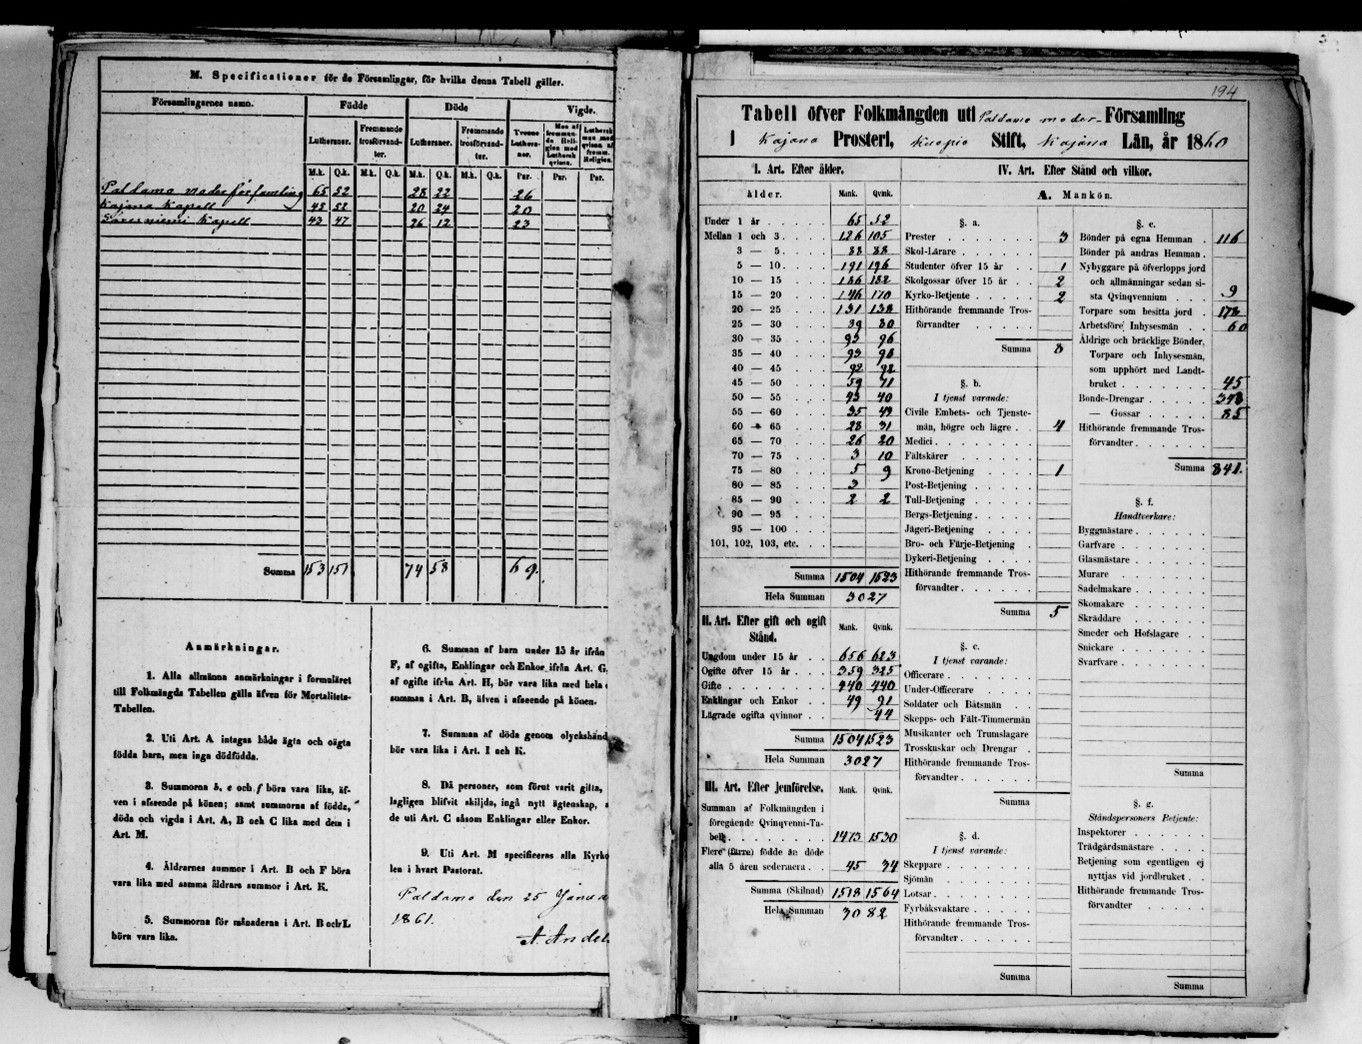 M. Specificationer för de Församlingar, för hvilka denna Tabell gäller.
Församlingarnes namn. Födde Döde Vigde.
Lutheraner. Fremmande trosförvandter. Lutheraner. Fremmande trosförvandter. Tvenne Lutheraner. Man af fremmande Religion med Luthersk qvinna. Luthersk man med qvinna af fremm. Religion.
M.k. Q.k. M.k. Q.k. M.k. Q.k. M.k. Q.k. Par. Par. Par.
Paldamo moderförsamling 65 52 28 22 26
Kajana Kapell 45 52 20 24 20
Säresniemi Kapell 43 47 26 12 23
Summa 153 151 74 58 69.
Anmärkningar.
1. Alla allmänna anmärkningar i formuläret
till Folkmängds Tabellen gälla äfven för Mortalitets-
Tabellen.
2. Uti Art. A intagas både ägta och oägta
födda barn, men inga dödfödda.
3. Summorna b, e och f böra vara lika, äf-
ven i afseende på könen; samt summorna af födda,
döda och vigda i Art. A, B och C lika med dem i
Art. M.
4. Åldrarnes summor i Art. B och F böra
vara lika med samma åldrars summor i Art. K.
5. Summorna för månaderna i Art. B och L
böra vara lika.
6. Summan af barn under 15 år ifrån
F, af ogifta, Enklingar och Enkor ifrån Art. G,
af ogifte ifrån Art. H, bör vara lika med hela
summan i Art. B, äfven i afseende på könen.
7. Summan af döda genom olyckshänd
bör vara lika i Art. I och K.
8. Då personer, som förut varit gifta,
lagligen blifvit skiljda, ingå nytt ägtenskap,
de uti Art. C såsom Enklingar eller Enkor.
9. Uti Art. M specificeras alla Kyrko
len i hvart Pastorat.
Paldamo den 25 Janua
1861.
A. Andel
194
Tabell öfver Folkmängden uti Paldamo moder- Församling
I Kajana Prosteri, Kuopio Stift, Kajana Län, år 1860
I. Art. Efter ålder.
Ålder. Mank. Qvink.
Under 1 år 65 52
Mellan 1 och 3 126 105
3 — 5 88 88
5 — 10 191 196
10 — 15 186 182
15 — 20 146 170
20 — 25 131 138
25 — 30 39 80
30 — 35 95 96
35 — 40 93 98
40 — 45 92 92
45 — 50 59 71
50 — 55 43 40
55 — 60 35 49
60 — 65 28 31
65 — 70 26 20
70 — 75 3 10
75 — 80 5 9
80 — 85 3
85 — 90 2 2
90 — 95
95 — 100
101, 102, 103, etc.
Summa 1504 1523
Hela Summan 3027
II. Art. Efter gift och ogift
Stånd. Mank. Qvink.
Ungdom under 15 år 656 623
Ogifte öfver 15 år 359 325
Gifte 440 440
Enklingar och Enkor 49 91
Lägrade ogifta qvinnor 44
Summa 1504 1523
Hela Summan 3027
III. Art. Efter jemförelse. Mank. Qvink.
Summan af Folkmängden i
föregående Qvinqvenni-Ta-
bell 1473 1530
Flere (färre) födde än döde
alla 5 åren sedermera 45 34
Summa (Skilnad) 1518 1564
Hela Summan 3082
IV. Art. Efter Stånd och vilkor.
A. Mankön.
§. a.
Prester 3
Skol-Lärare
Studenter öfver 15 år 1
Skolgossar öfver 15 år 2
Kyrko-Betjente 2
Hithörande fremmande Tros-
förvandter
Summa 8
§. b.
I tjenst varande:
Civile Embets- och Tjenste-
män, högre och lägre 4
Medici
Fältskärer
Krono-Betjening 1
Post-Betjening
Tull-Betjening
Bergs-Betjening
Jägeri-Betjening
Bro- och Färje-Betjening
Dykeri-Betjening
Hithörande fremmande Tros-
förvandter
Summa 5
§. c.
I tjenst varande:
Officerare
Under-Officerare
Soldater och Båtsmän
Skepps- och Fält-Timmermän
Musikanter och Trumslagare
Trosskuskar och Drengar
Hithörande fremmande Tros-
förvandter
Summa
§. d.
I tjenst varande:
Skeppare
Sjömän
Lotsar
Fyrbåksvaktare
Hithörande fremmande Tros-
förvandter
Summa
§. e.
Bönder på egna Hemman 116
Bönder på andras Hemman
Nybyggare på öfverlopps jord
och allmänningar sedan si-
sta Qvinqvennium 9
Torpare som besitta jord 178
Arbetsföre Inhysesmän 60
Äldrige och bräcklige Bönder,
Torpare och Inhysesmän,
som upphört med Landt-
bruket 45
Bonde-Drengar 348
— Gossar 85
Hithörande fremmande Tros-
förvandter
Summa 841.
§. f.
Handtverkare:
Byggmästare
Garfvare
Glasmästare
Murare
Sadelmakare
Skomakare
Skräddare
Smeder och Hofslagare
Snickare
Svarfvare
Summa
§. g.
Ståndspersoners Betjente:
Inspektorer
Trädgårdsmästare
Betjening som egentligen ej
nyttjas vid jordbruket
Hithörande fremmande Tros-
förvandter
Summa